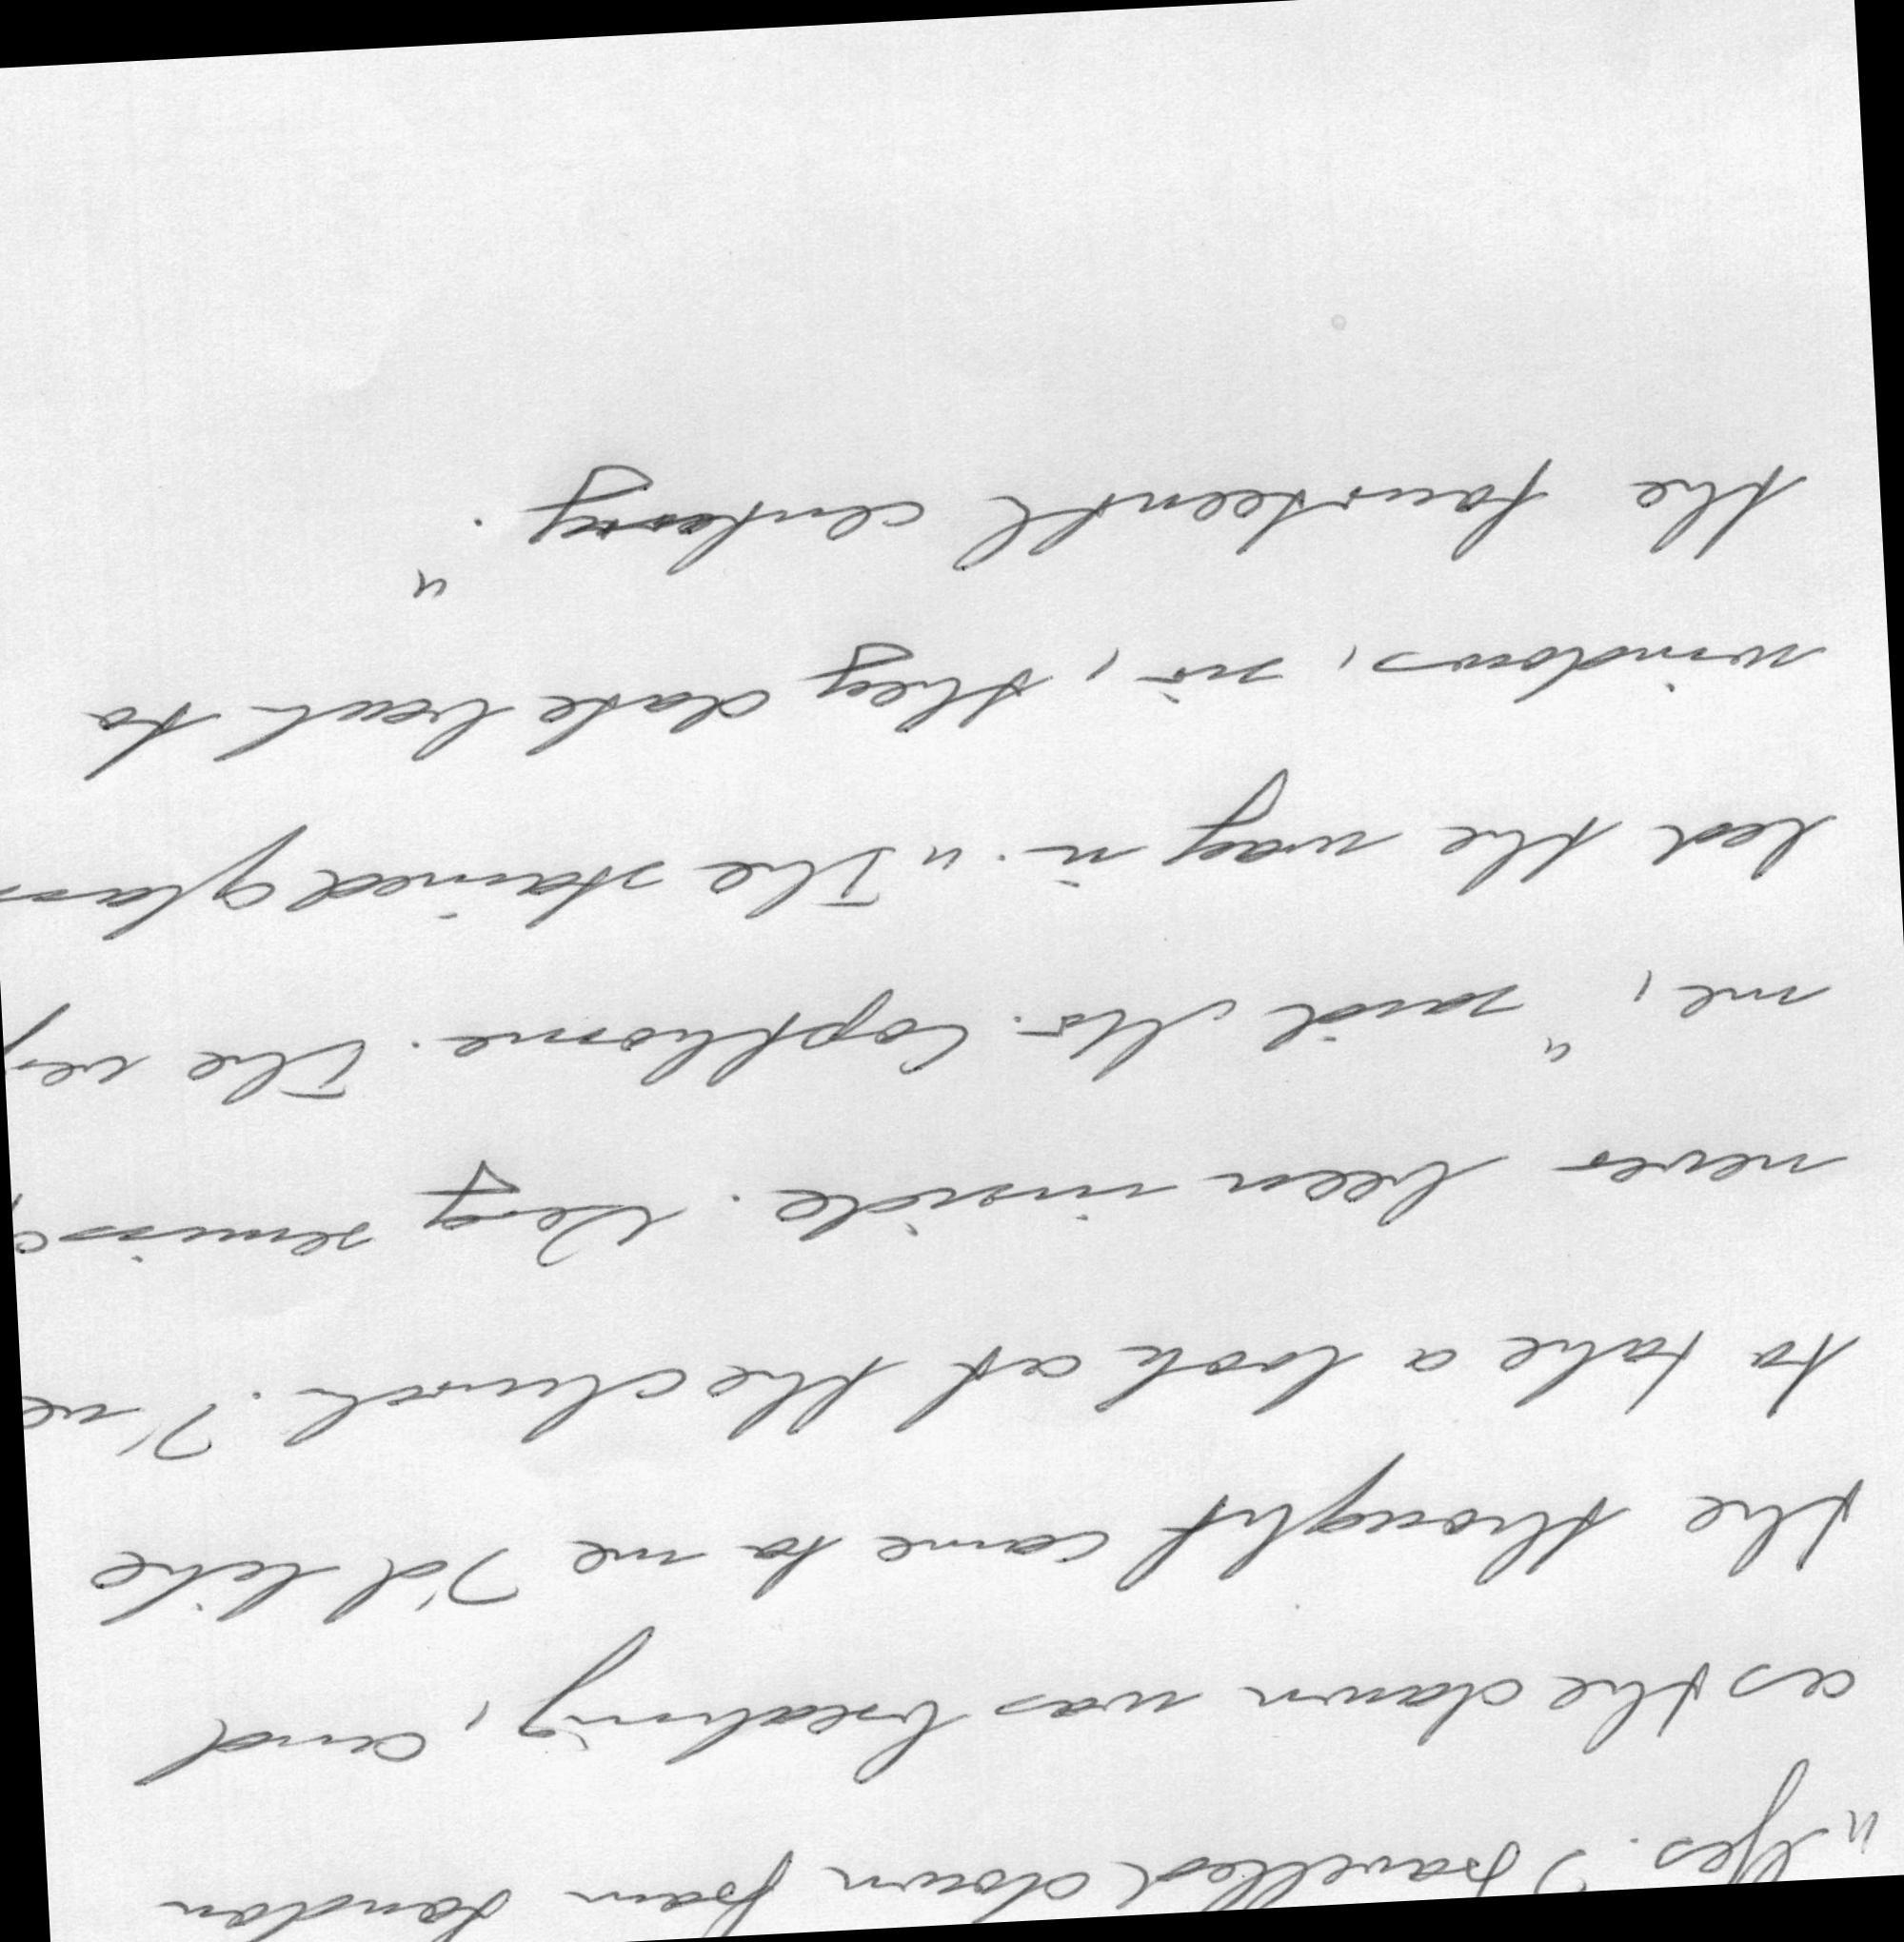 "Yes. I travelled down from London
as the dawn was breaking, and
the thought came to me I'd like
to take a look at the church. I've
never been inside. Very
me," said Mr. Copthorne. The
led the way in. "The stained glass
windows, sir, they date back to
the fourteenth century."